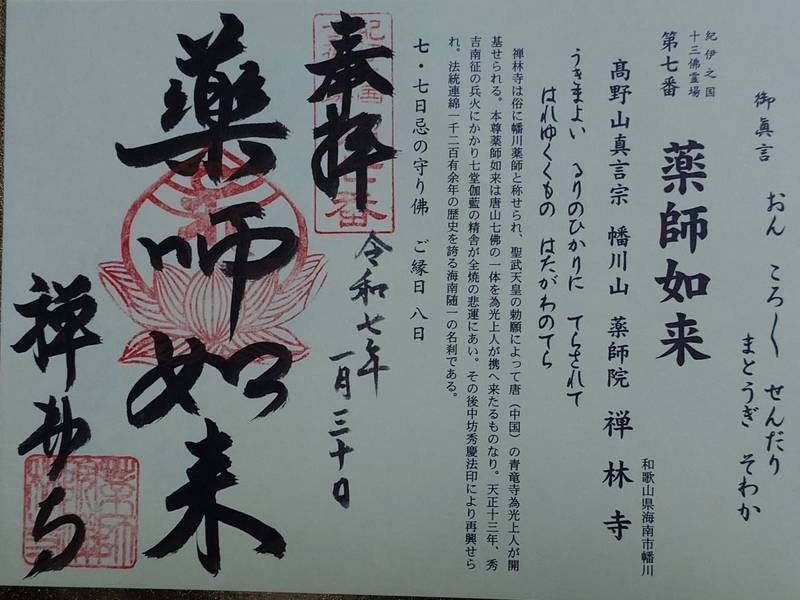 御眞言 おん ころ〳〵 せんだり
まとうぎ そわか
紀伊之国
十三佛霊場
第七番 薬師如来
高野山真言宗 幡川山 薬師院 禅林寺
和歌山県海南市幡川
うきまよい るりのひかりに てらされて
はれゆくくもの はたがわのてら
禅林寺は俗に幡川薬師と称せられ、聖武天皇の勅願によって唐（中国）の青竜寺為光上人が開
基せられる。本尊薬師如来は唐山七佛の一体を為光上人が携へ来たるものなり。天正十三年、秀
吉南征の兵火にかかり七堂伽藍の精舎が全焼の悲運にあい。その後中坊秀慶法印により再興せら
れ。法統連綿一千二百有余年の歴史を誇る海南随一の名刹である。
七・七日忌の守り佛 ご縁日 八日
奉拝
令和七年
一月三十日
薬師如来
禅林寺